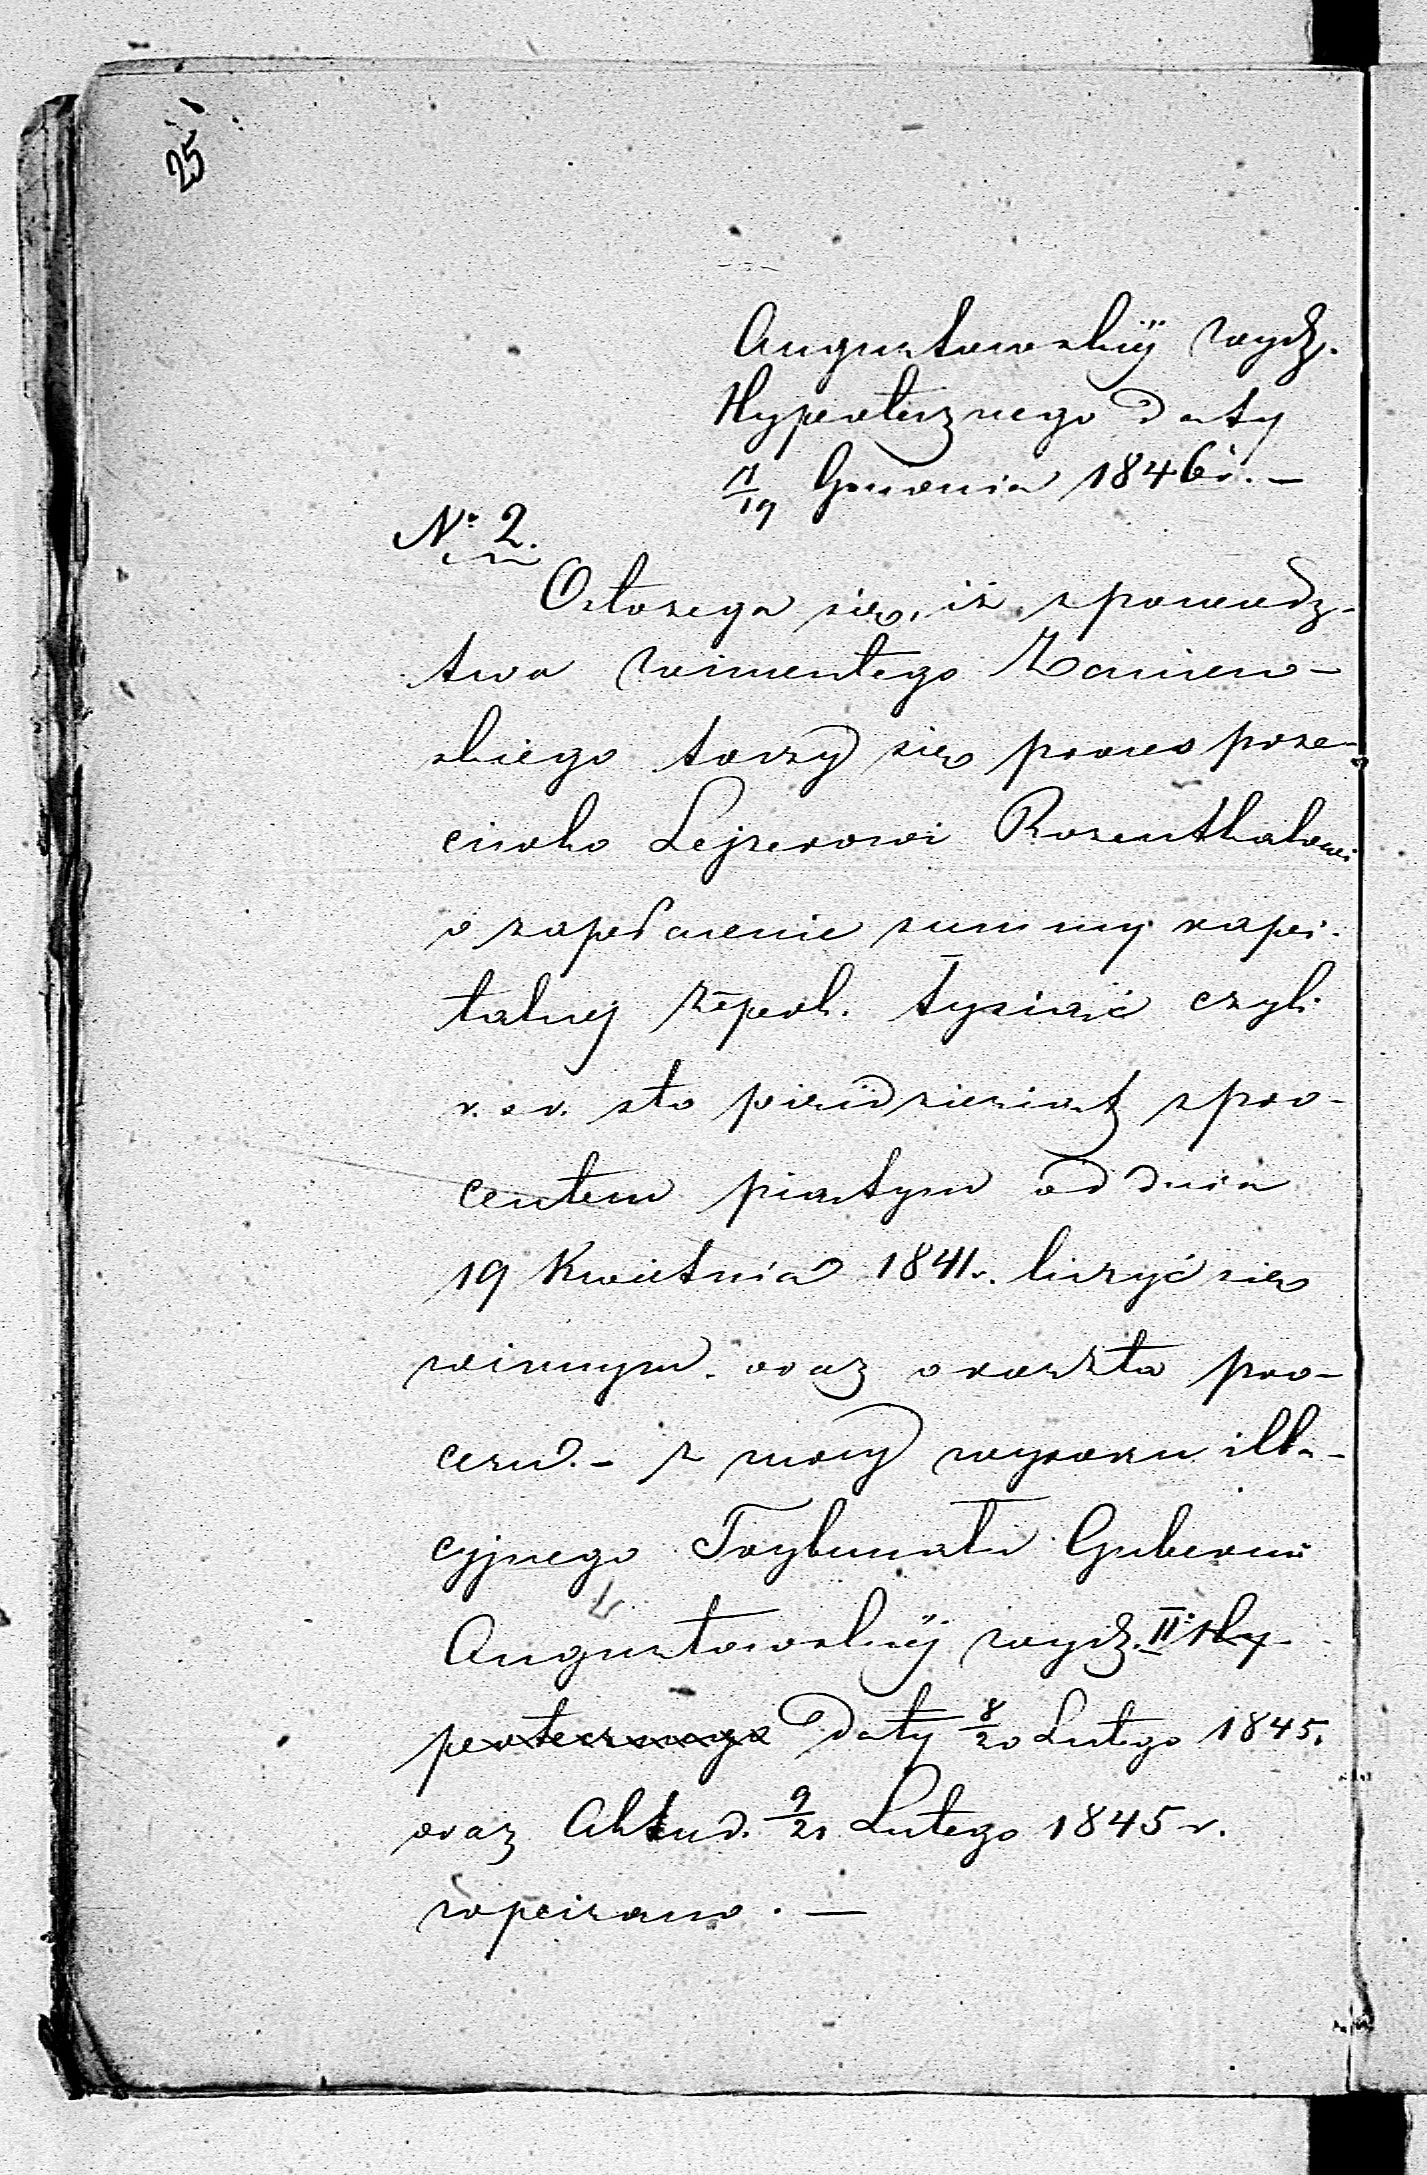 25
Augustowskiéj wydz.
Hypotecznego daty
7/19 Grudnia 1846 r. —
No 2.
Ostrzega się, iż z powodz-
twa Wincentego Zaniew-
skiego toczy się proces prze-
ciwko Lejzerowi Rosenthalowi
o zapłacenie summy kapi-
talnej złpol. tysiąć czyli
r. sr. sto pięćdziesiąt z pro-
centem piątym od dnia
19 Kwietnia 1841 r. liczyć się
winnym. oraz o koszta pro-
cesu. – z mocy wyroku illa-
cyjnego Trybunału Gubernii
Augustowskiéj wydz. II Hy-
potecznego daty 8/20 Lutego 1845.
oraz Aktu d. 9/21 Lutego 1845 r.
wpisano. —